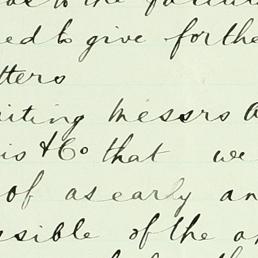 to the
ed to give for the
tters
iting Messrs
is & Co that we
of as early an
ssible of the a